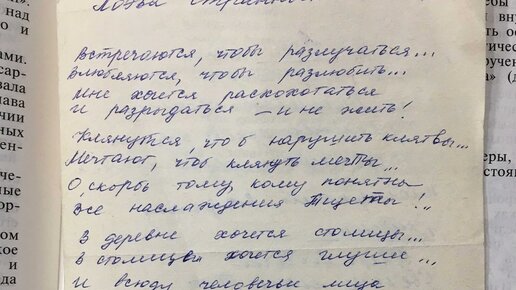 над
о и
Встречаются, чтобы разлучаться...
Влюбляются, чтобы разлюбить...
Мне хочется расхохотаться
И разрыдаться – и не жить!
Клянутся, что б нарушить клятвы...
Мечтают, чтоб клянуть мечты...
О, скорбь тому, кому понятны
Все наслаждения тщеты!..
В деревне хочется столицы...
В столице хочется глуши...
И всюду человечьи лица
ами.
сар-
вала
лава
ении
ных
мен-
че-
ные
ор-
ром
кое
и
да